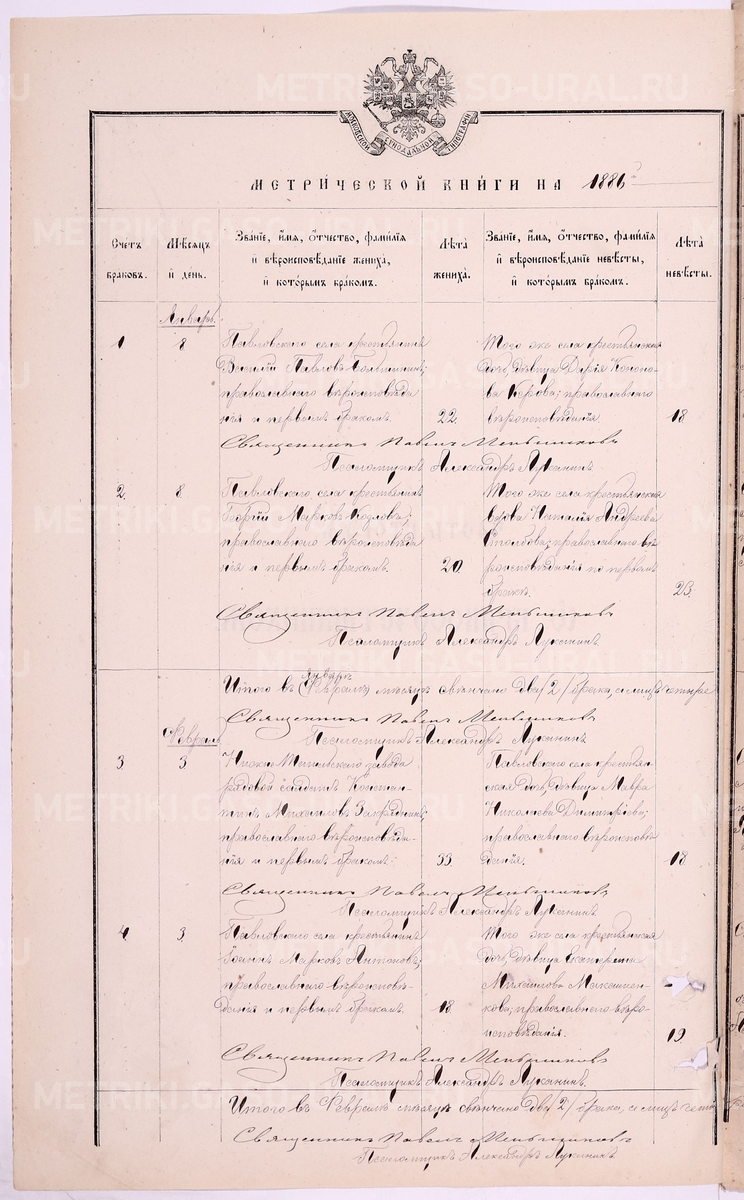 МЕТРИЧЕСКОЙ КНИГИ НА 1886 г
Счетъ браковъ.
Мѣсяцъ и день.
Званіе, имя, отчество, фамилія
и вѣроисповѣданіе жениха,
и которымъ бракомъ.
Лѣта жениха.
Званіе, имя, отчество, фамилія
и вѣроисповѣданіе невѣсты,
и которымъ бракомъ.
Лѣта невѣсты.
Январь
1 8 Павловскаго села крестьянинъ
Василій Павловъ
православнаго вѣроисповѣда
нія и первымъ бракомъ. 22
Того же села крестьянская
дочь, дѣвица Дарія Конона
ва православнаго
вѣроисповѣданія. 18
Священникъ Павелъ Меньшиковъ
Псаломщикъ Александръ Лукининъ
2 8 Павловскаго села крестьянинъ
Георгій Марковъ Козловъ;
православнаго вѣроисповѣда
нія и первымъ бракомъ. 20
Того же села крестьянская
вдова Наталія Андреева
православнаго вѣ
роисповѣданія по первомъ
бракѣ. 23
Священникъ Павелъ Меньшиковъ
Псаломщикъ Александръ Лукининъ
Январѣ
Итого въ Февралѣ мѣсяцѣ свѣнчано два /2/ брака, а лицъ четыре
Священникъ Павелъ Меньшиковъ
Псаломщикъ Александръ Лукининъ
Февраль
3 3 Нижне завода
рядовой солдатъ Констан
тинъ Михаиловъ
православнаго вѣроисповѣда
нія и первымъ бракомъ. 33
Павловскаго села крестьян
ская дочь, дѣвица Мавра
Николаева Димитріева;
православнаго вѣроисповѣ
данія. 18
Священникъ Павелъ Меньшиковъ
Псаломщикъ Александръ Лукининъ
4 3 Павловскаго села крестьянинъ
Іоаннъ Марковъ Антоновъ;
православнаго вѣроисповѣ
данія и первымъ бракомъ. 18
Того же села крестьянская
дочь, дѣвица Екатерина
Михаилова
православнаго вѣро
исповѣданія. 19
Священникъ Павелъ Меньшиковъ
Псаломщикъ Александръ Лукининъ
Итого въ Февралѣ мѣсяцѣ свѣнчано два /2/ брака, а лицъ
Священникъ Павелъ Меньшиковъ
Псаломщикъ Александръ Лукининъ
METRIKI.GASO-URAL.RU